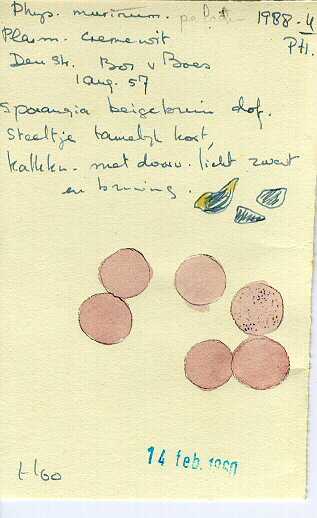 Phys. murinum. 1988-4
Plasm. cremewit Pl.
Den Str. Bos v Boes
1 aug. 57
Sporangia beigebruin dof.
Steeltje tamelijk kort
Kalkkn. met doorv. licht zwart
en bruinig.
14 feb. 1960